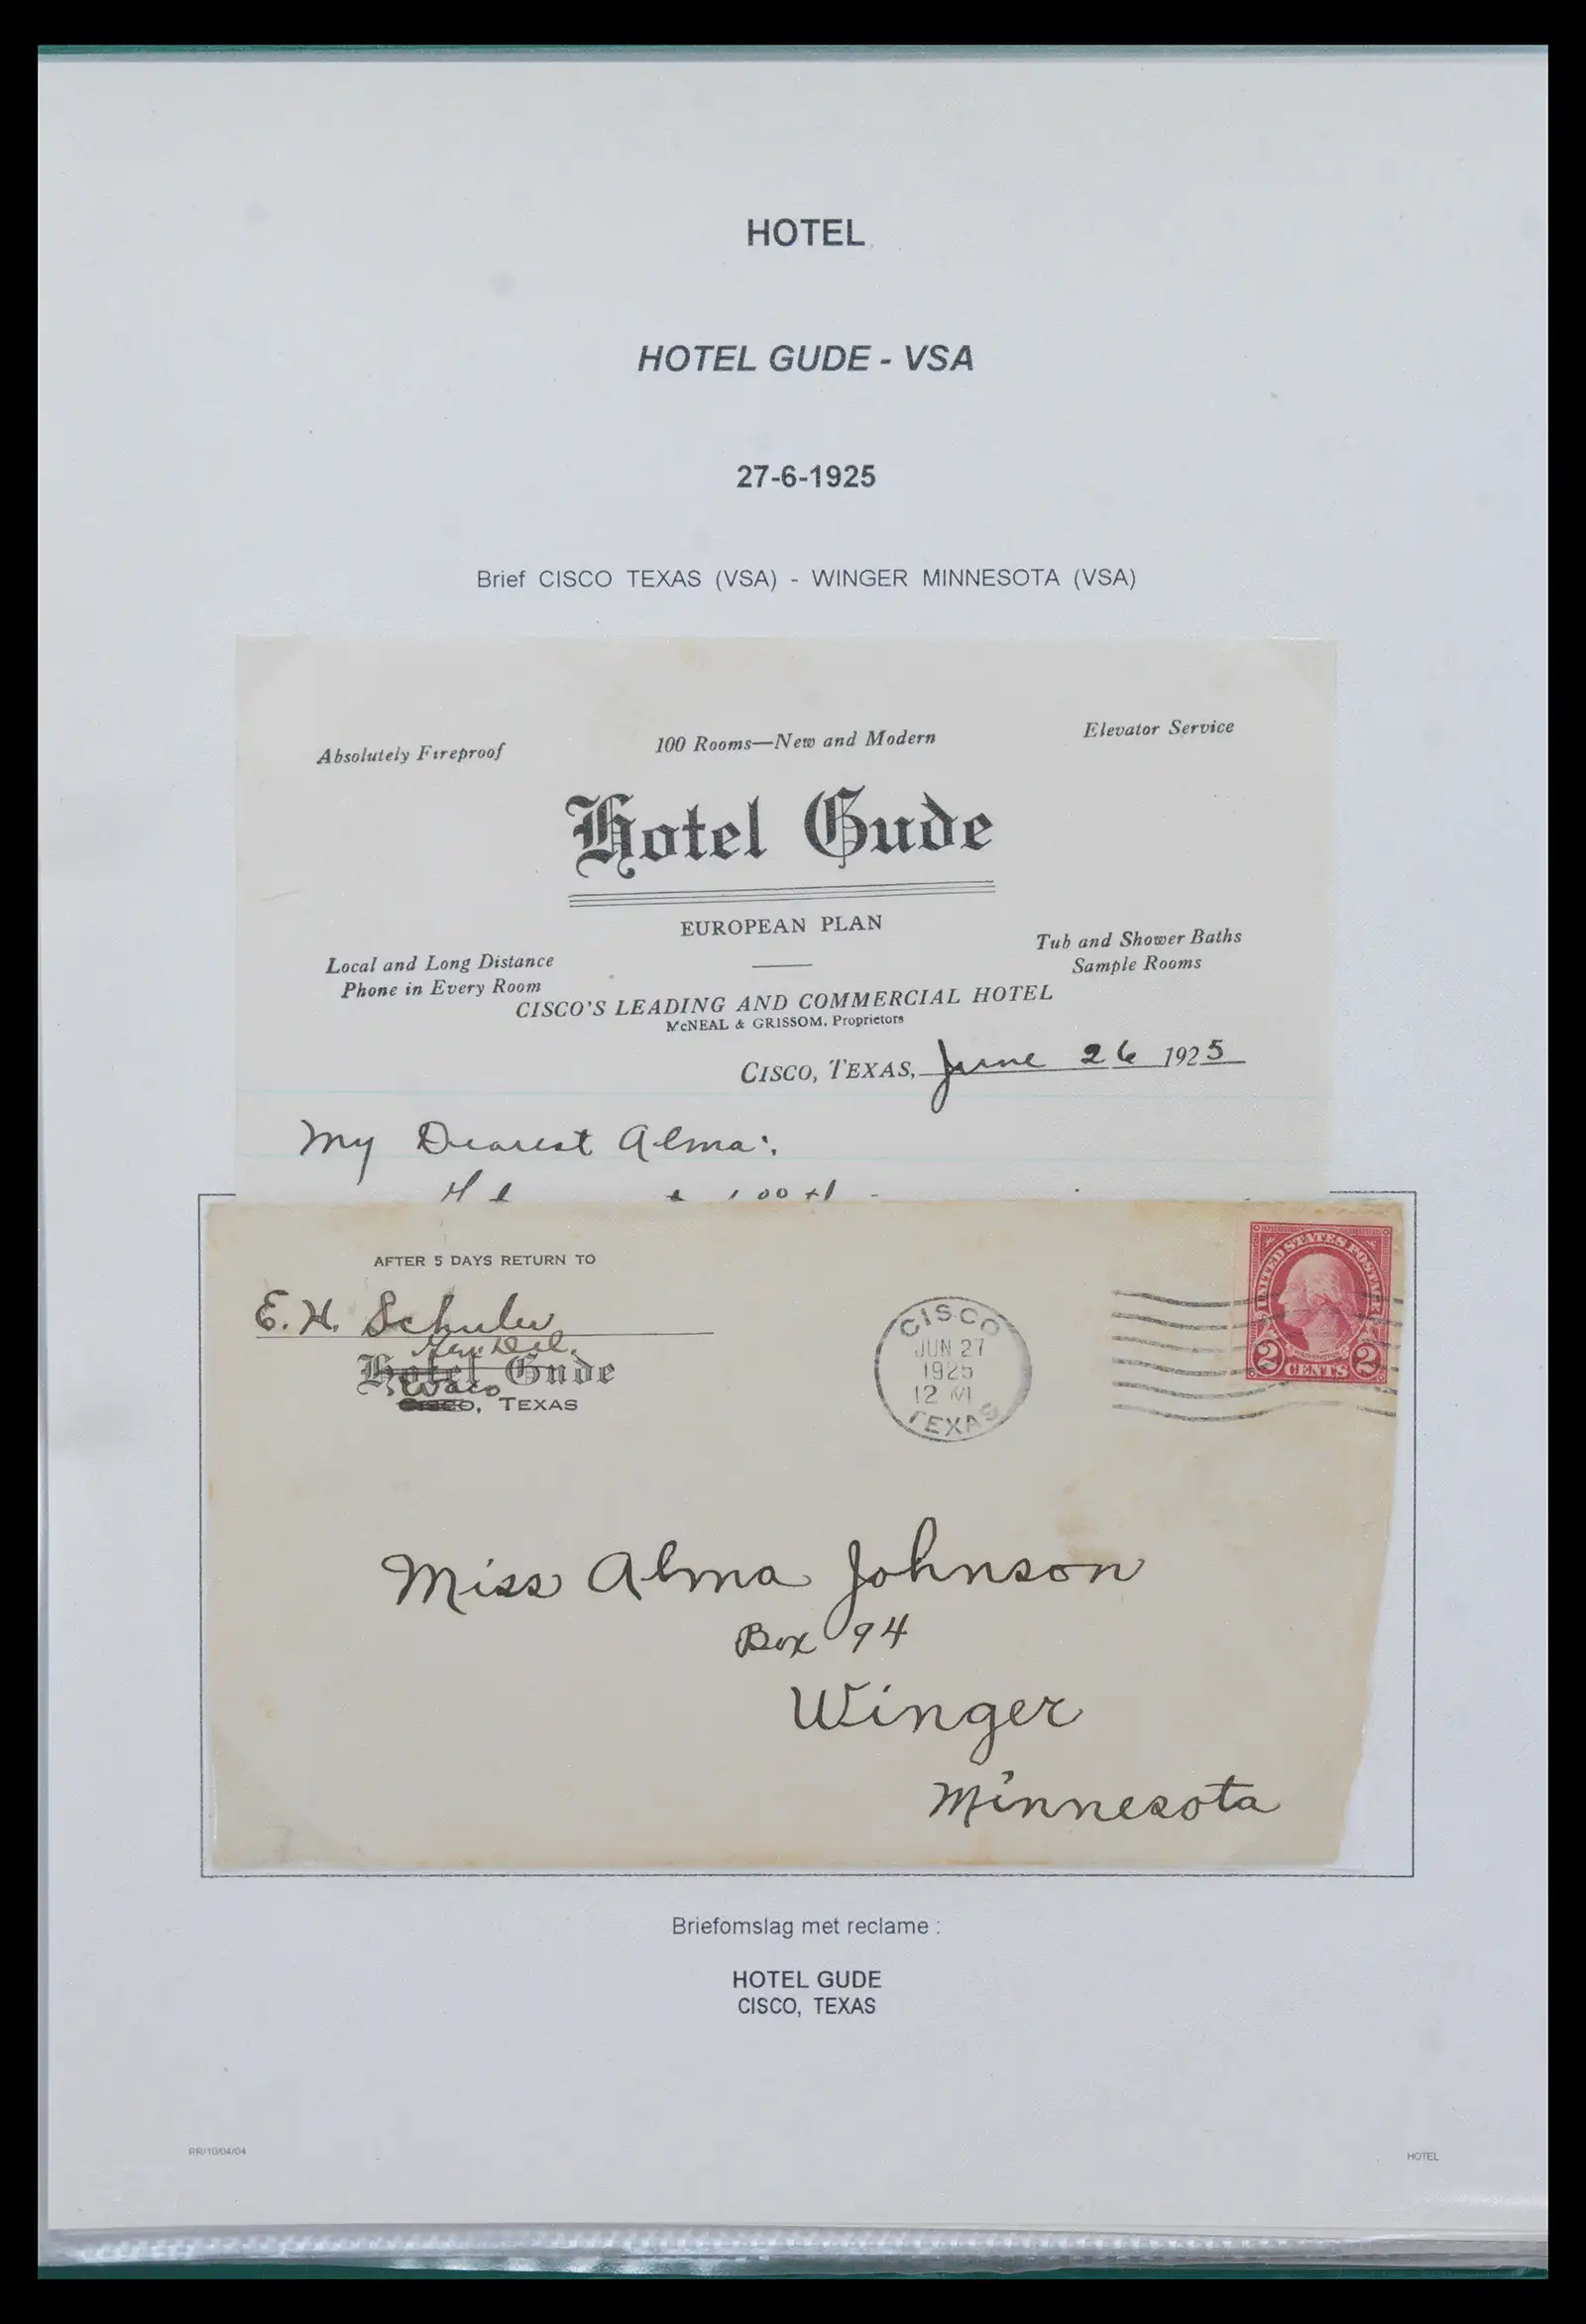 HOTEL
HOTEL GUDE - VSA
27-6-1925
Brief CISCO TEXAS (VSA) - WINGER MINNESOTA (VSA)
Absolutely Fireproof
100 Rooms—New and Modern
Elevator Service
Hotel Gude
EUROPEAN PLAN
Local and Long Distance
Phone in Every Room
Tub and Shower Baths
Sample Rooms
CISCO'S LEADING AND COMMERCIAL HOTEL
McNEAL & GRISSOM, Proprietors
CISCO, TEXAS, June 26 1925
My Dearest Alma:
AFTER 5 DAYS RETURN TO
E. H. Schuler
Gen. Del.
Hotel Gude
Waco
Cisco, TEXAS
CISCO
JUN 27
1925
12 M
TEXAS
UNITED STATES POSTAGE
WASHINGTON
2 CENTS 2
Miss Alma Johnson
Box 94
Winger
Minnesota
Briefomslag met reclame :
HOTEL GUDE
CISCO, TEXAS
RR/10/04/04
HOTEL